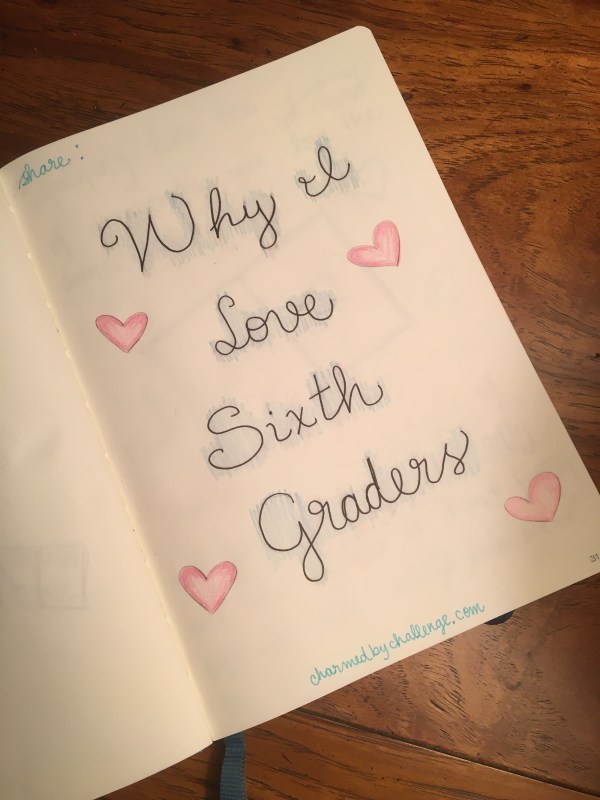 share:
Why I
Love
Sixth
Graders
charmedbychallenge.com
31